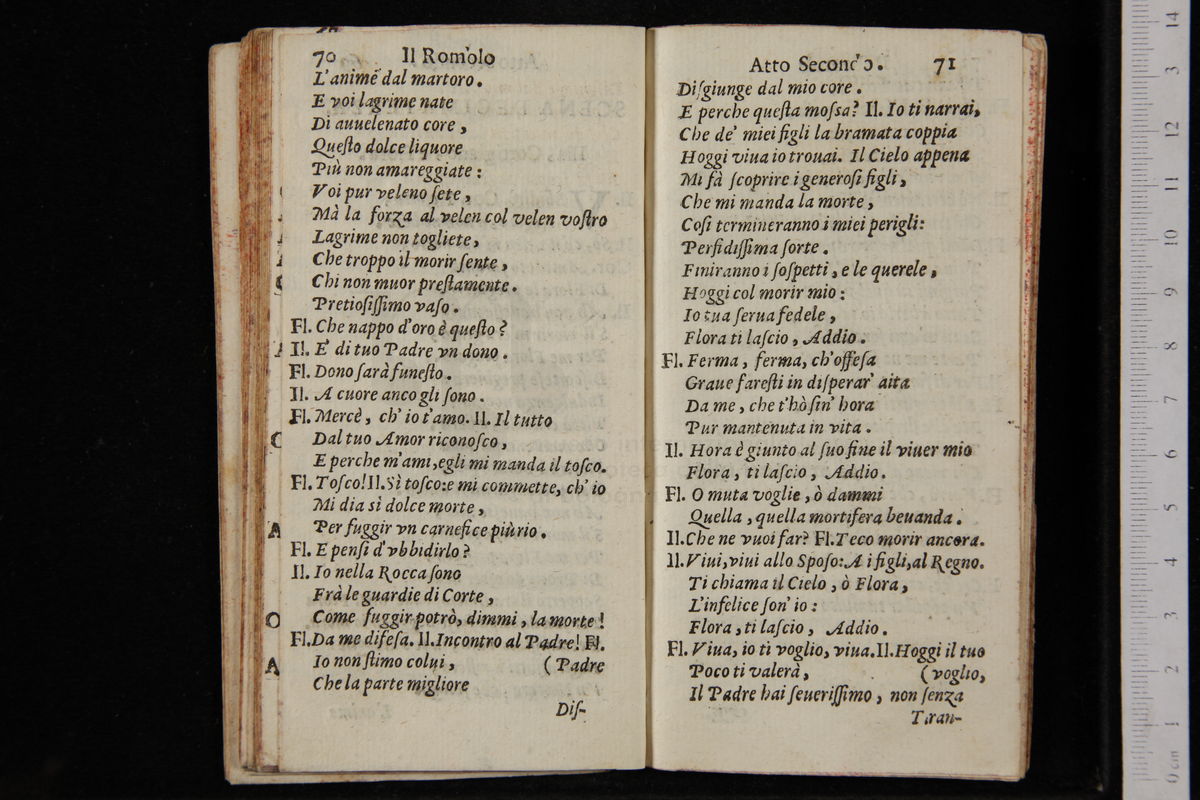 70 Il Romolo
L'anime dal martoro.
E voi lagrime nate
Di auuelenato core,
Queſto dolce liquore
Più non amareggiate:
Voi pur veleno ſete,
Mà la forza al velen col velen voſtro
Lagrime non togliete,
Che troppo il morir ſente,
Chi non muor preſtamente.
Pretioſiſſimo vaſo.
Fl. Che nappo d'oro è queſto?
Il. E' di tuo Padre vn dono.
Fl. Dono ſarà funeſto.
Il. A cuore anco gli ſono.
Fl. Mercè, ch' io t'amo. Il. Il tutto
Dal tuo Amor riconoſco,
E perche m'ami, egli mi manda il toſco.
Fl. Toſco! Il. Sì toſco: e mi commette, ch' io
Mi dia sì dolce morte,
Per fuggir vn carnefice più rio.
Fl. E penſi d'vbbidirlo?
Il. Io nella Rocca ſono
Frà le guardie di Corte,
Come fuggir potrò, dimmi, la morte!
Fl. Da me difeſa. Il. Incontro al Padre! Fl.
Io non ſtimo colui, (Padre
Che la parte migliore
Diſ-
Atto Secondo. 71
Diſgiunge dal mio core.
E perche queſta moſsa? Il. Io ti narrai,
Che de' miei figli la bramata coppia
Hoggi viua io trouai. Il Cielo appena
Mi fà ſcoprire i generoſi figli,
Che mi manda la morte,
Coſi termineranno i miei perigli:
Perfidiſſima ſorte.
Finiranno i ſoſpetti, e le querele,
Hoggi col morir mio:
Io tua ſerua fedele,
Flora ti laſcio, Addio.
Fl. Ferma, ferma, ch'offeſa
Graue fareſti in diſperar' aita
Da me, che t'hò ſin' hora
Pur mantenuta in vita.
Il. Hora è giunto al ſuo fine il viuer mio
Flora, ti laſcio, Addio.
Fl. O muta voglie, ò dammi
Quella, quella mortifera beuanda.
Il. Che ne vuoi far? Fl. Teco morir ancora.
Il. Viui, viui allo Spoſo: A i figli, al Regno.
Ti chiama il Cielo, ò Flora,
L'infelice ſon' io:
Flora, ti laſcio, Addio.
Fl. Viua, io ti voglio, viua. Il. Hoggi il tuo
Poco ti valerà, (voglio,
Il Padre hai ſeueriſſimo, non ſenza
Tiran-